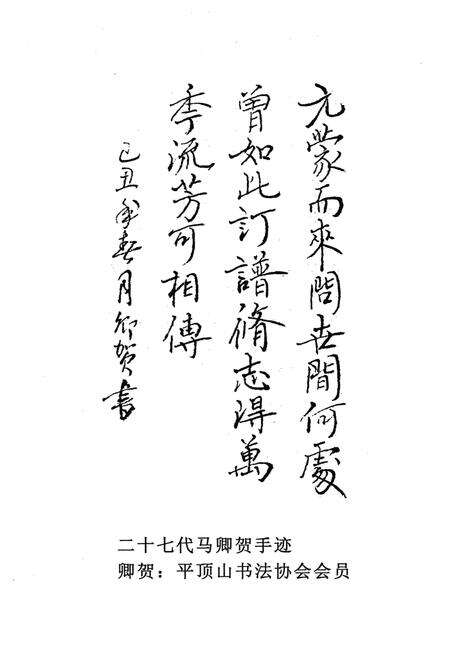 元蒙而來問世間何處
曾如此訂譜脩志得萬
季流芳可相傳
己丑年春月卿贺書
二十七代马卿贺手迹
卿贺：平顶山书法协会会员